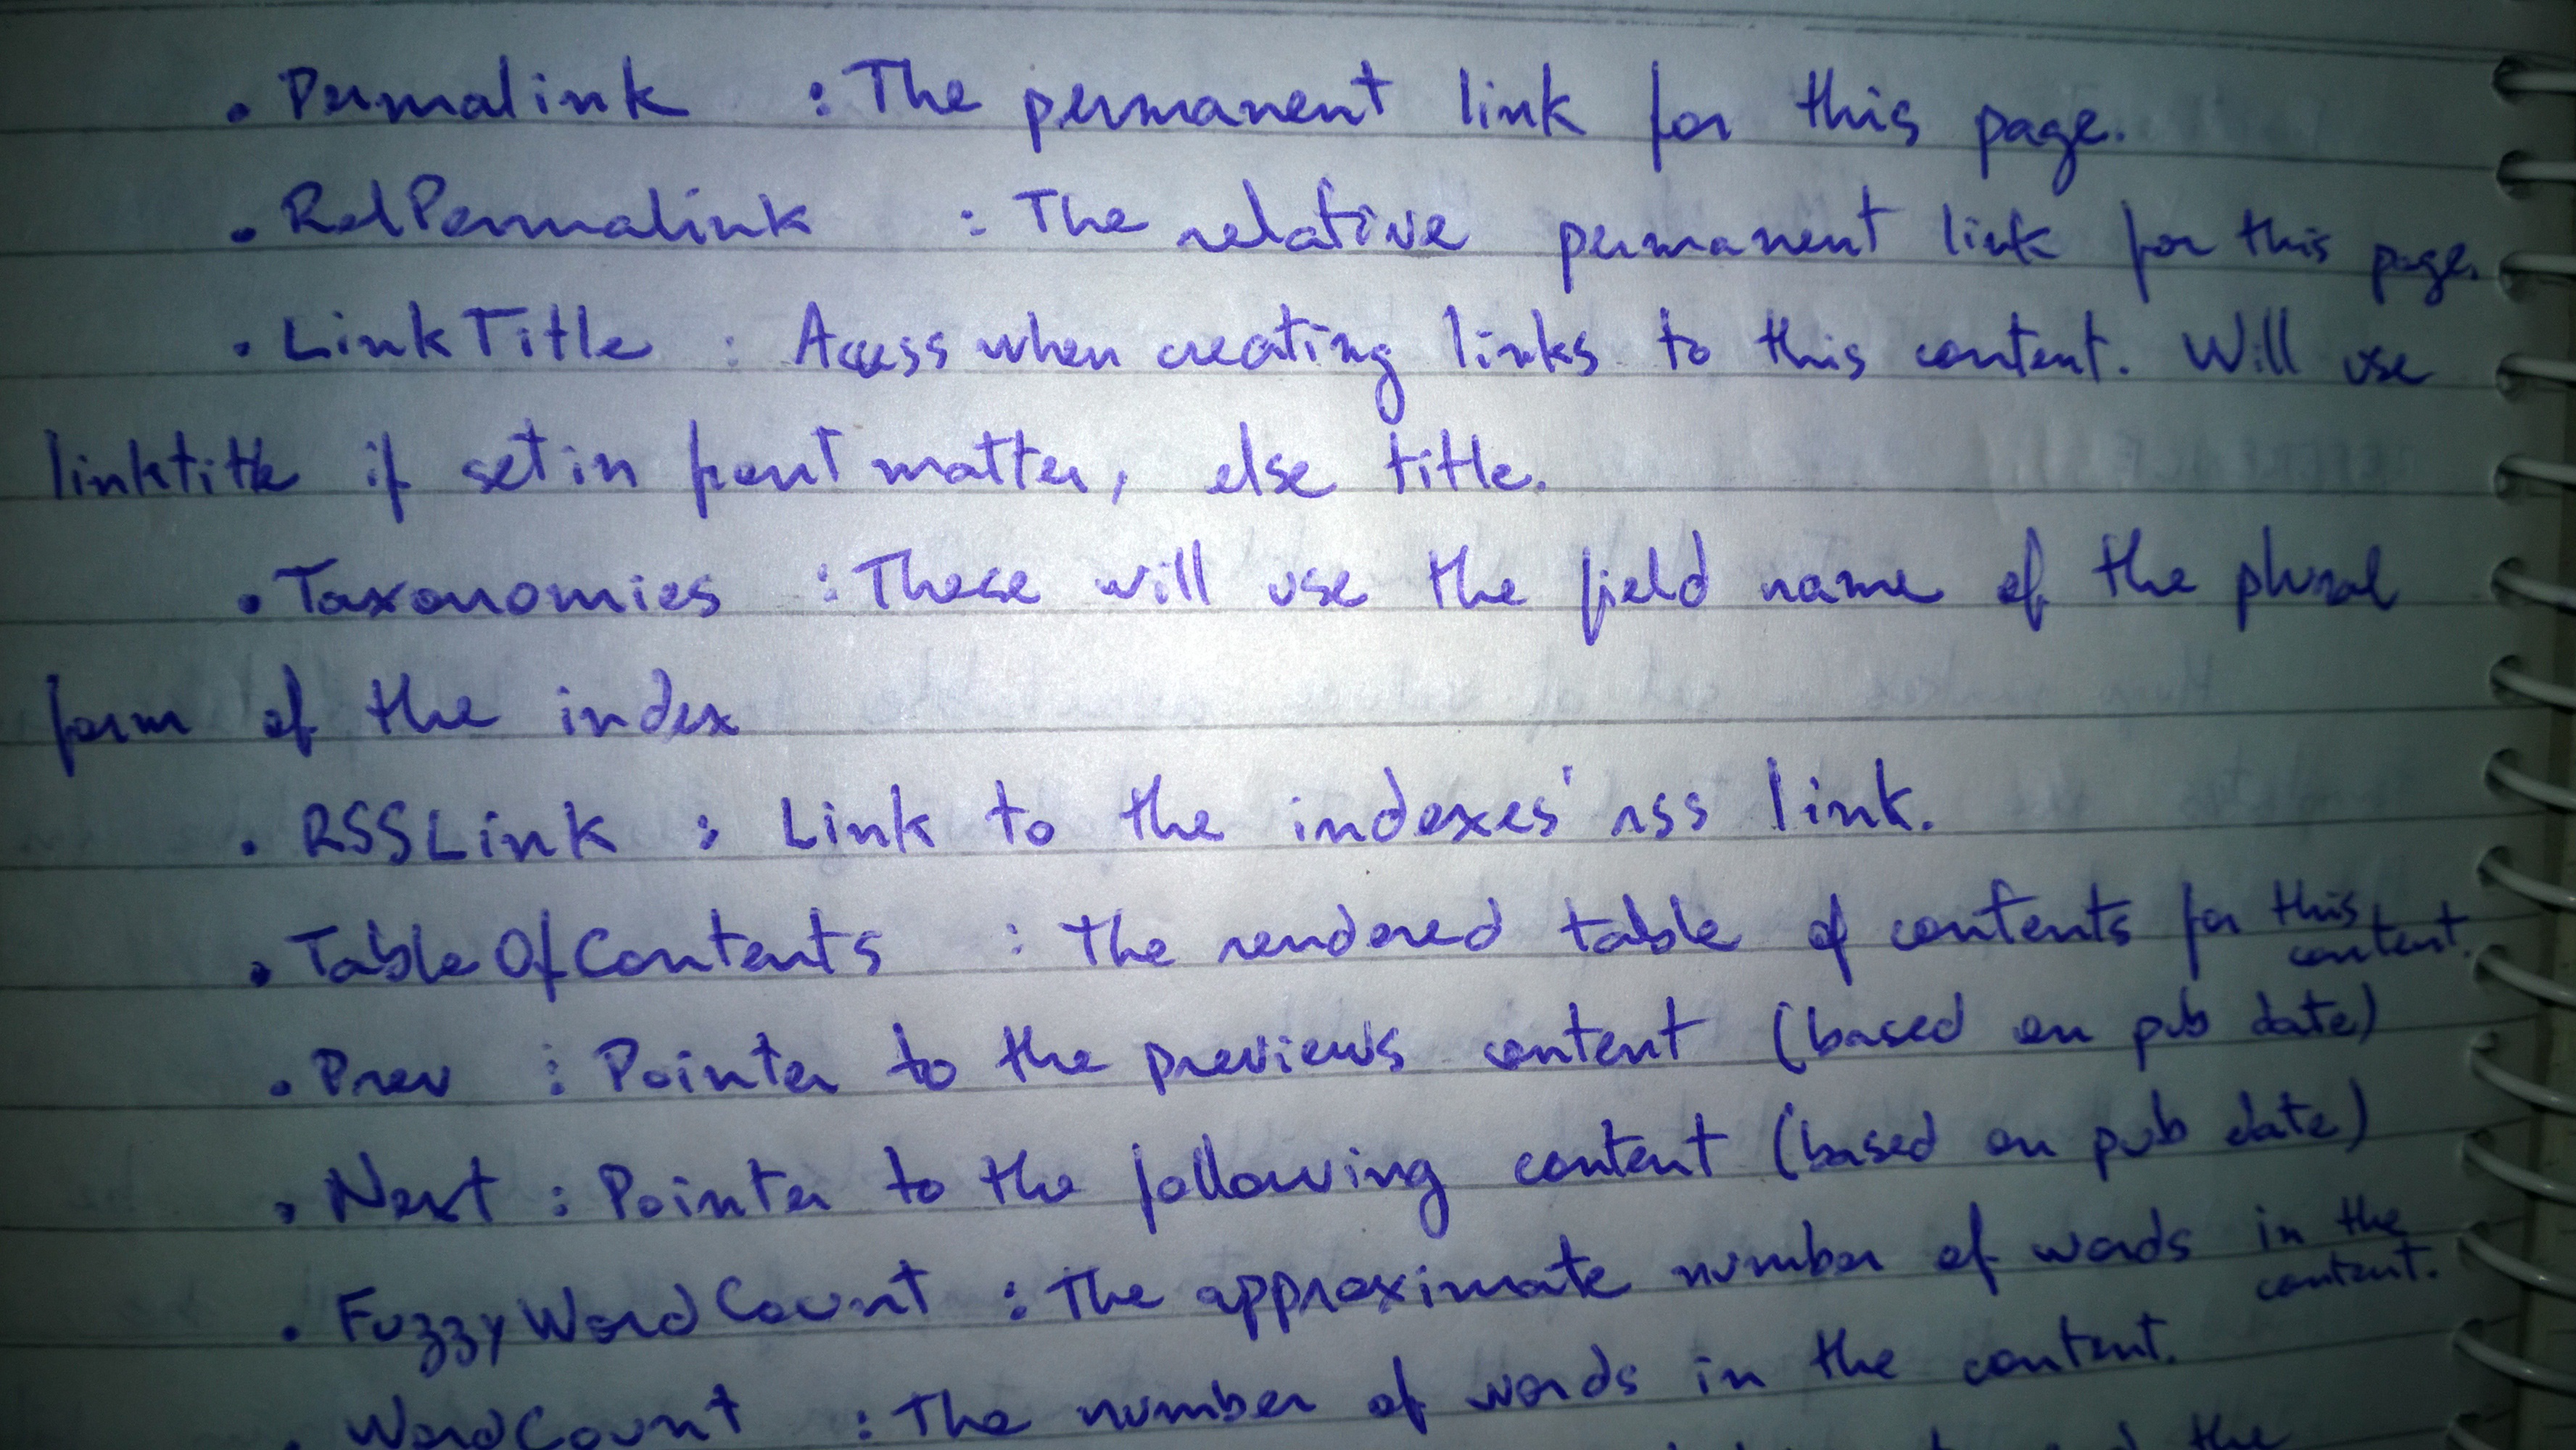 . Permalink : The permanent link for this page.
. RelPermalink : The relative permanent link for this page.
. LinkTitle : Access when creating links to this content. Will use
linktitle if set in front matter, else title.
. Taxonomies : These will use the field name of the plural
form of the index
. RSSLink : Link to the indexes' rss link.
. TableOfContents : The rendered table of contents for this
content.
. Prev : Pointer to the previews content (based on pub date)
. Next : Pointer to the following content (based on pub date)
. FuzzyWordCount : The approximate number of words in the
content.
. WordCount : The number of words in the content.
the